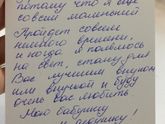 потому что я ещё
совсем маленький
Пройдёт совсем
немного времени,
и когда я появлюсь
на свет, стану для
Вас лучшим внуком
или внучкой и буду
очень вас любить
Мою бабушку